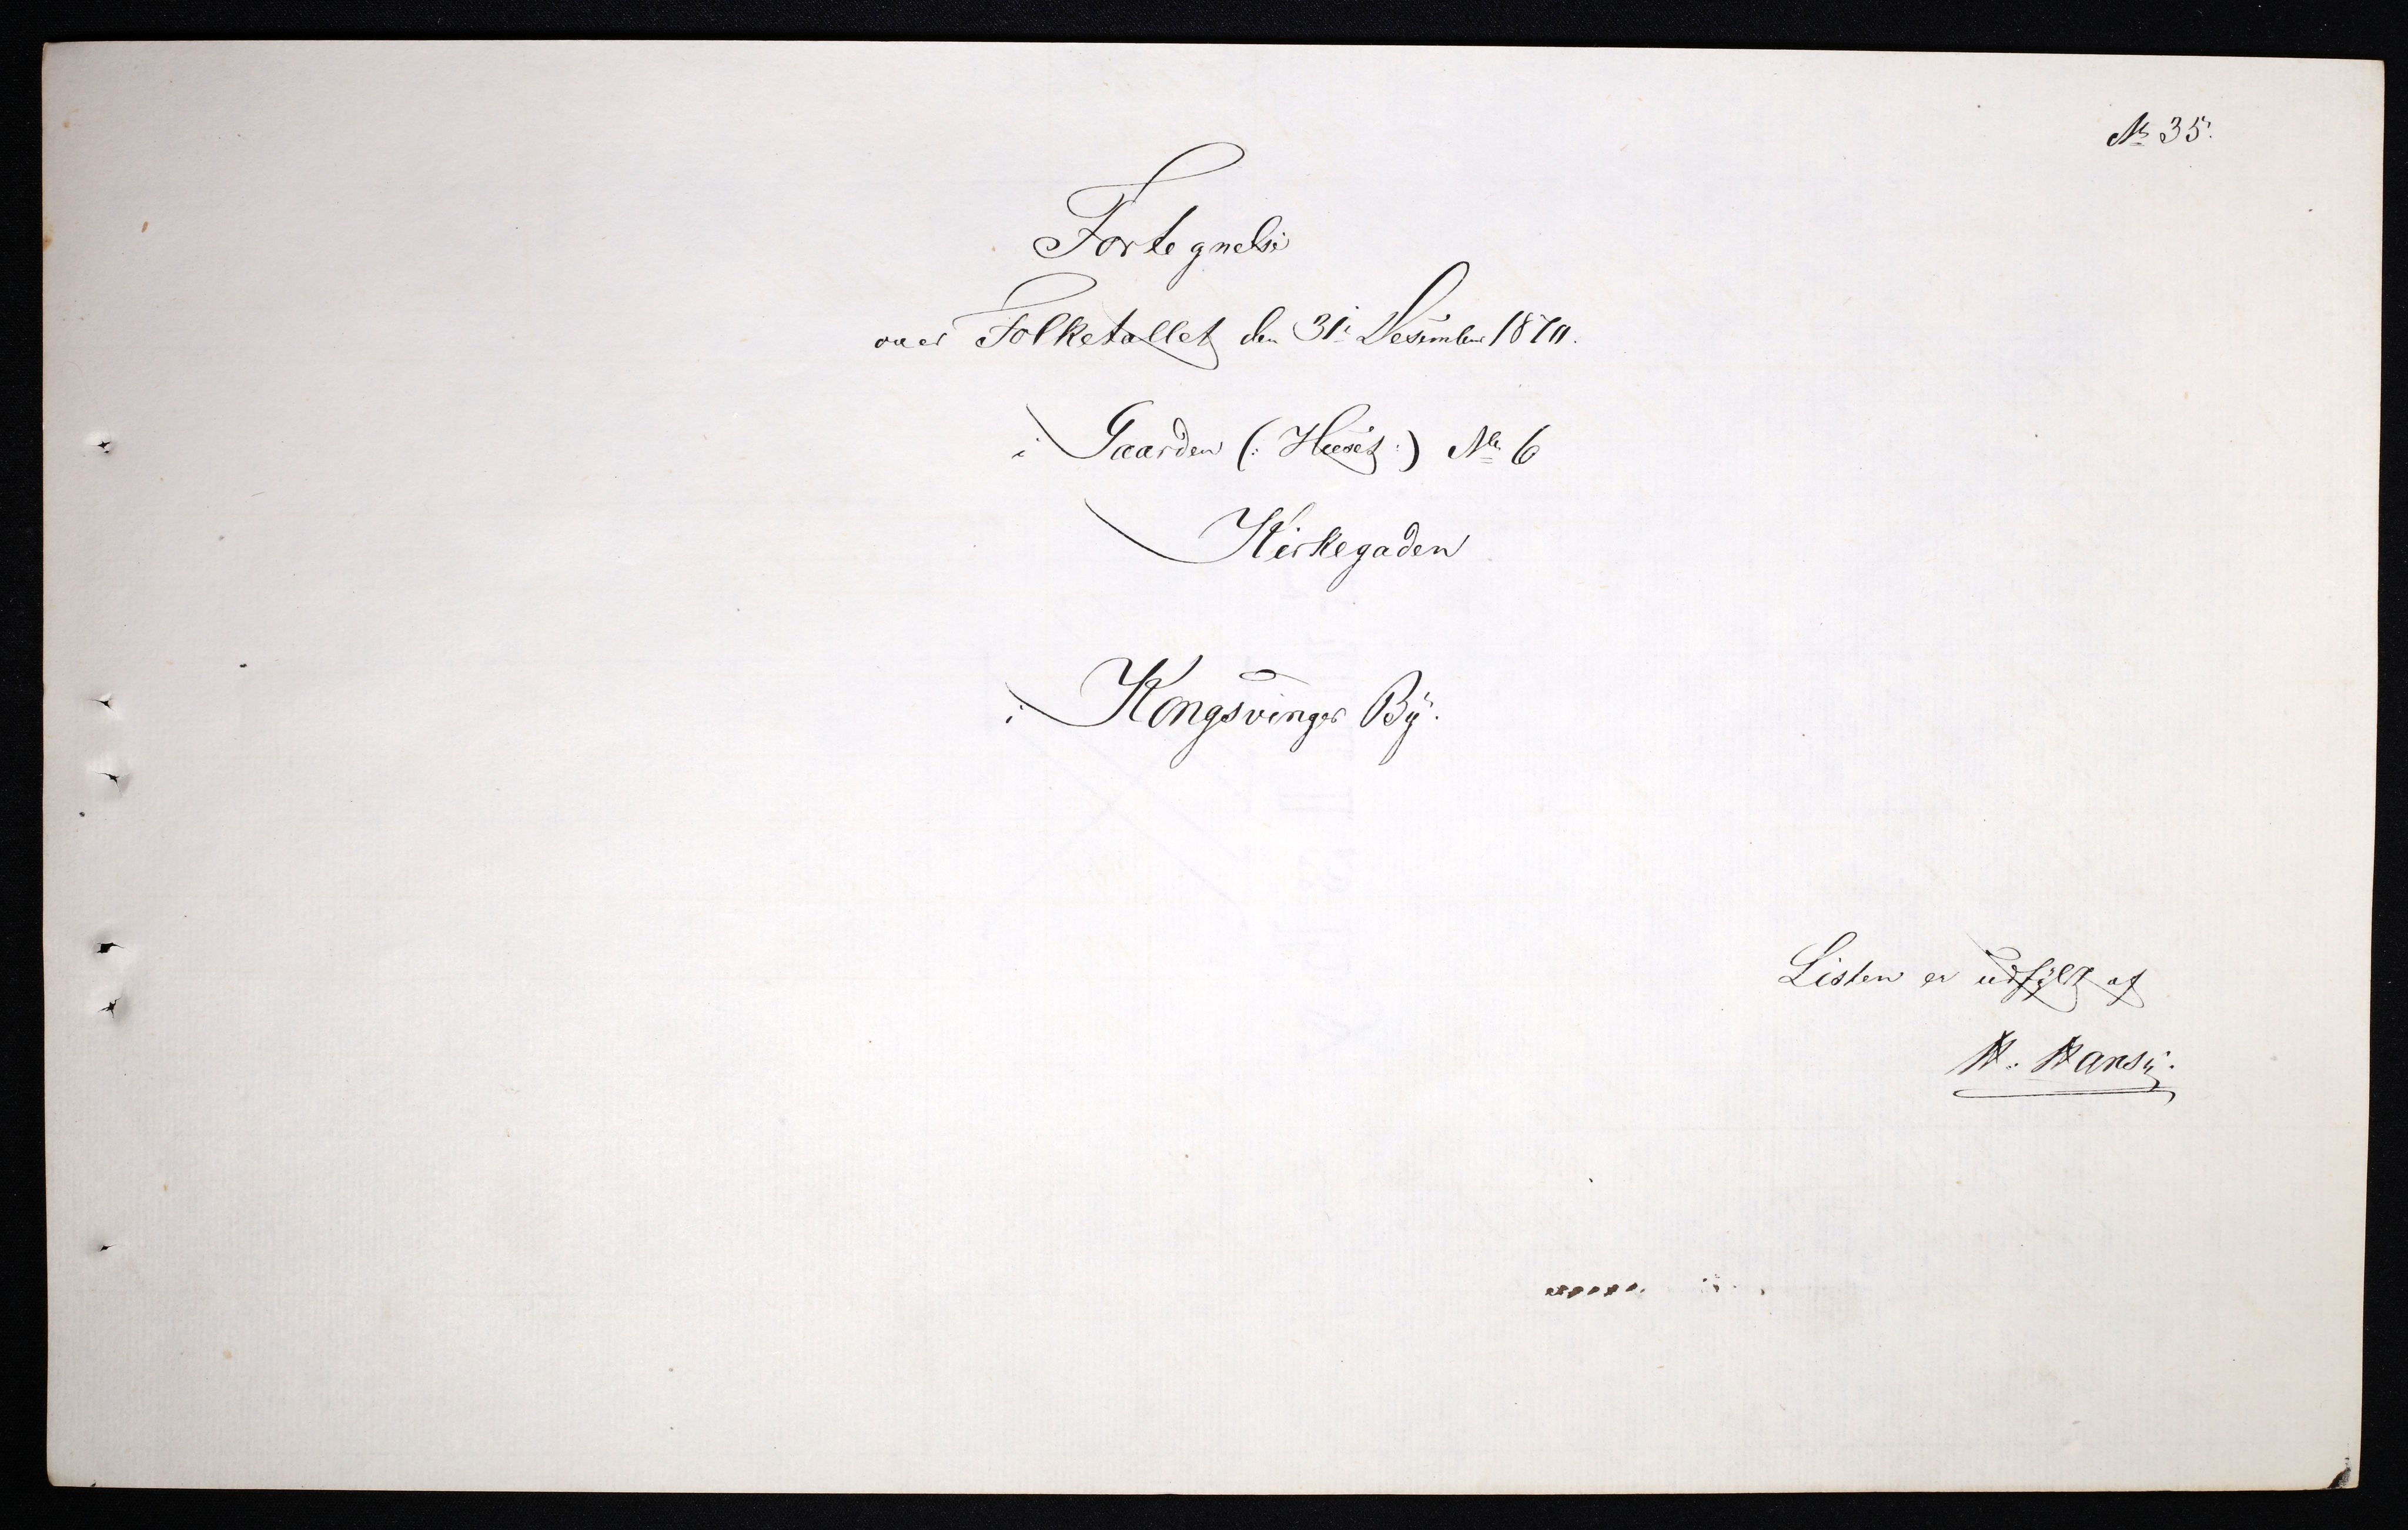 No 35.
Fortegnelse
over Folketallet den 31te Desember 1870.
i Gaarden (: Huset :) No 6
Kirkegaden
i Kongsvinger By.
Listen er udfyldt af
H. Hansen.